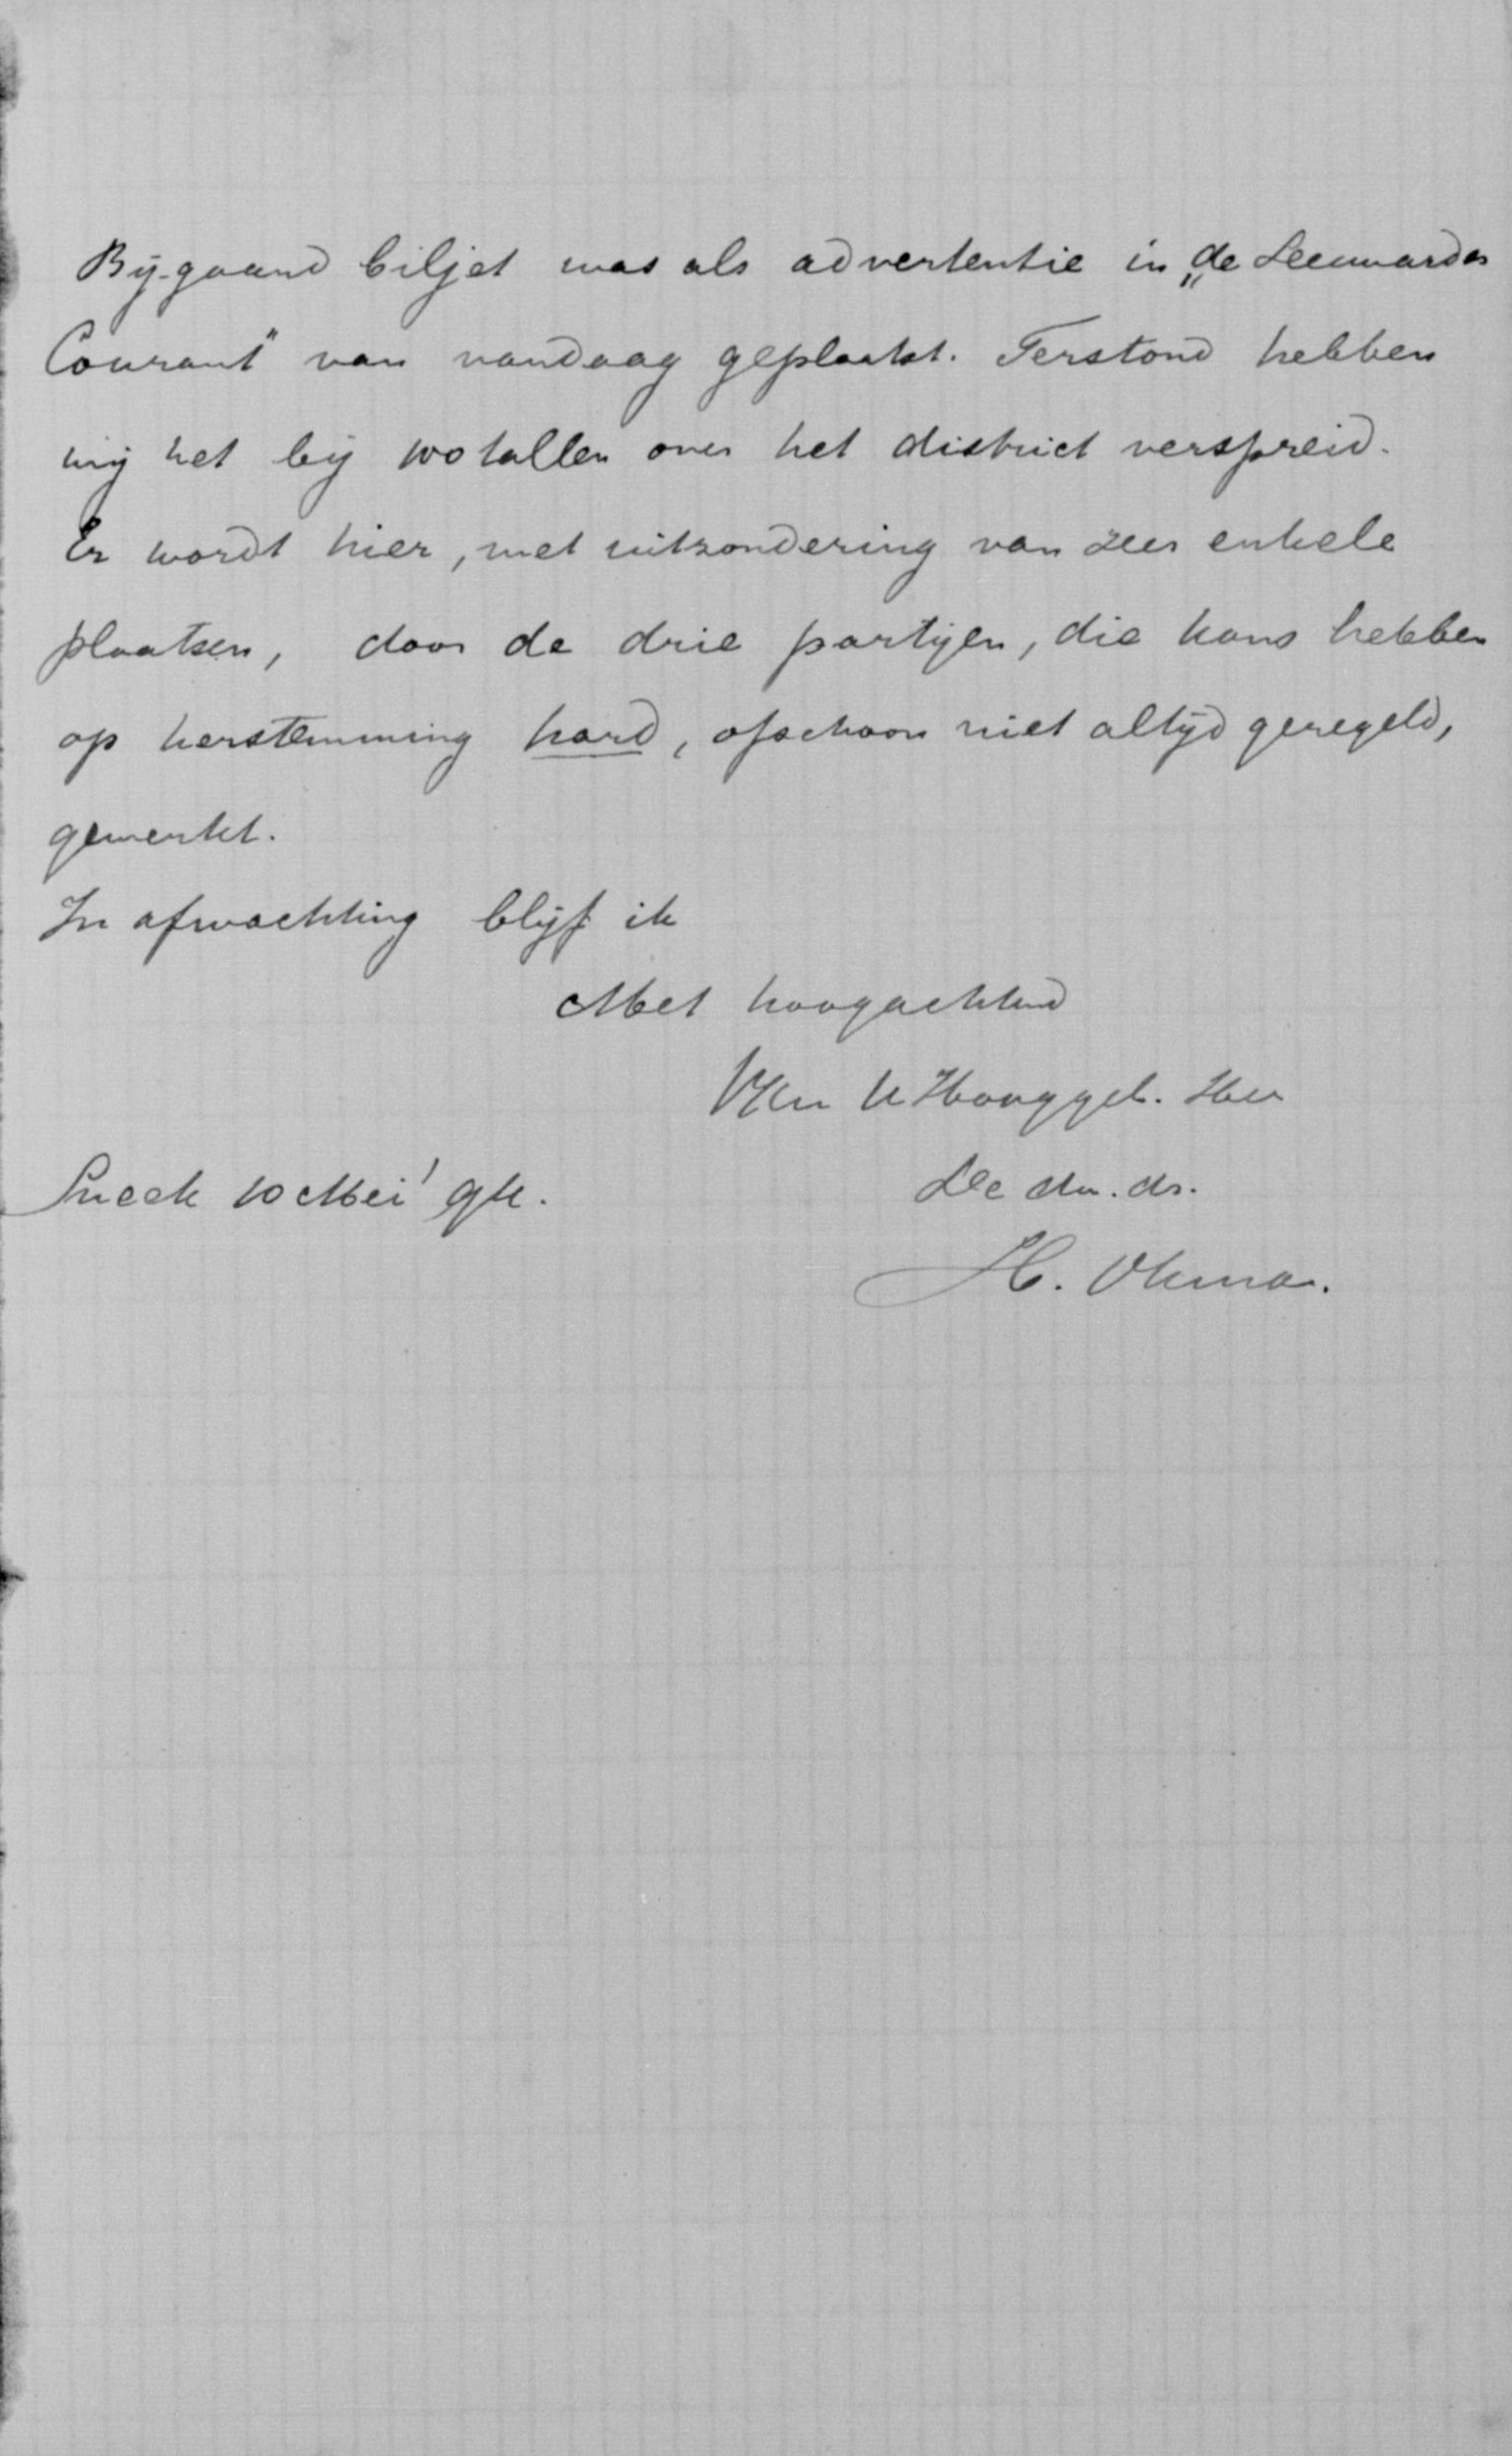 Bij-gaand biljet was als advertentie in „de Leeuwarder
Courant" van vandaag geplaatst. Terstond hebben
wij het bij 100 tallen over het district verspreid.
Er wordt hier, met uitzondering van zeer enkele
plaatsen, door de drie partijen, die kans hebben
op herstemming hard, ofschoon niet altijd geregeld,
gewerkt.
In afwachting blijf ik
Met hoogachtend
U Hooggeb. Heer
Sneek 10 Mei '94.
De dw. dr.
H. Okma.